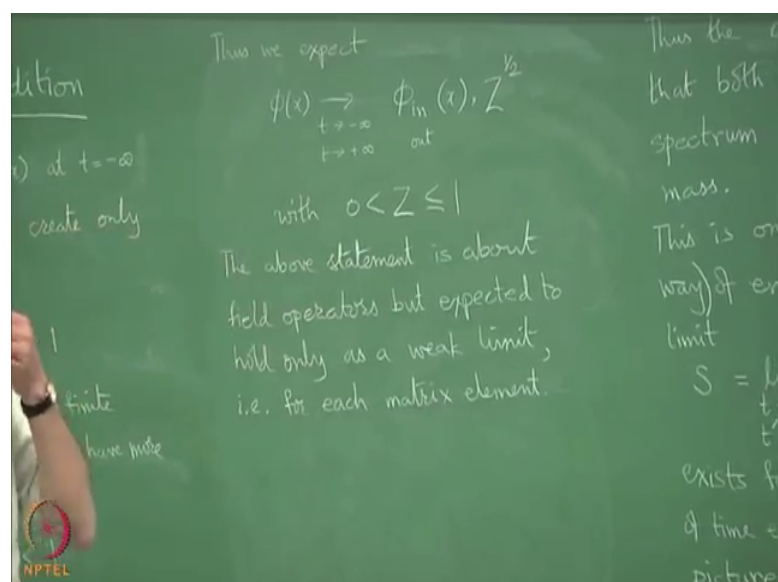 dition
x) at t=-∞
create only
1
finite
have more
Thus we expect
ϕ(x) → ϕin (x). Z^1/2
t→-∞ out
t→+∞
with 0 < Z ≤ 1
The above statement is about
field operators but expected to
hold only as a weak limit,
i.e. for each matrix element.
Thus the
that both
spectrum
mass.
This is on
way) of en
limit
S =
t
t'
exists f
of time t
picture
NPTEL